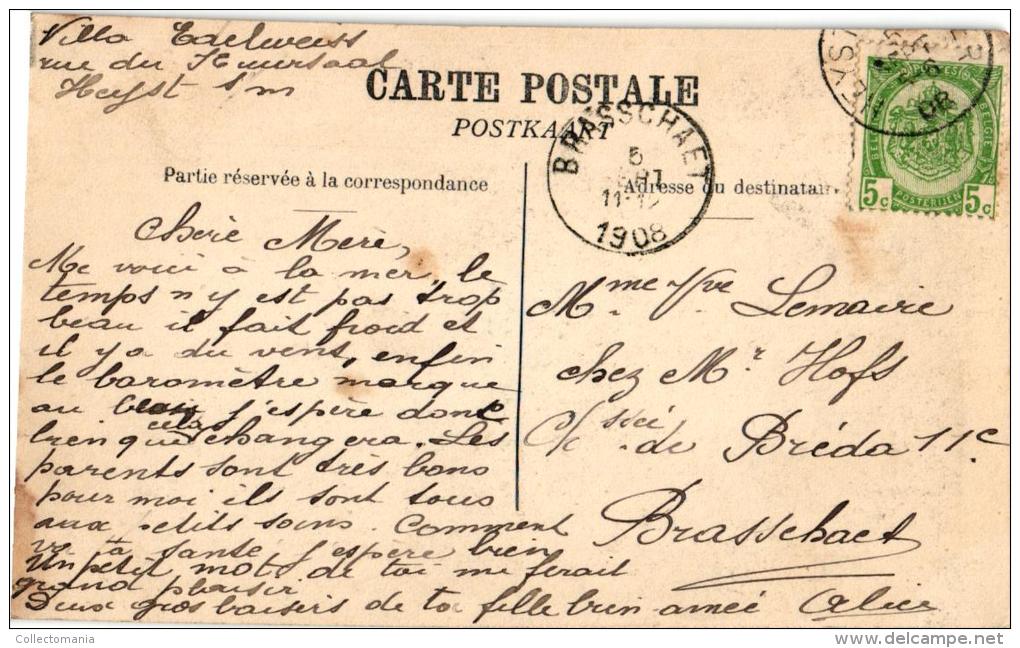 Villa Edelweiss
rue du Kursaal
Heyst s/m
CARTE POSTALE
POSTKAART
BRASSCHAET
5
11-12
1908
HEYST
BELGIQUE
BELGIE
5c
POSTERIJEN
5c
Partie réservée à la correspondance
Adresse du destinatair
Chère Mère,
Me voici à la mer, le
temps n'y est pas trop
beau il fait froid et
il y a du vent, enfin
le baromètre marque
au beau j'espère donc
bien que cela changera. Les
parents sont très bons
pour moi ils sont tous
aux petits soins. Comment
va ta santé j'espère bien
Un petit mot de toi me ferait
grand plaisir
Deux gros baisers de ta fille bien aimée Alice
Mme Vve Lemaire
chez Mr Hofs
de Bréda 11c
Brasschaet
Collectomania
www.delcampe.net